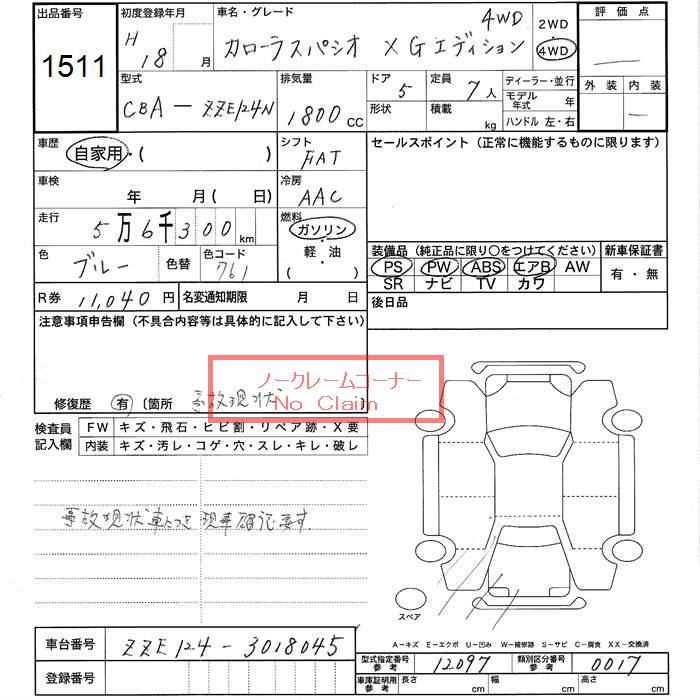 出品番号 初度登録年月 車名・グレード 評価点
1511
H 18 月
カローラスパシオ XGエディション 4WD
2WD・4WD
型式 排気量 ドア 定員 ディーラー・並行 外装 内装
CBA-ZZE124N 1800 CC 5 7人
形状 積載 kg
モデル年式 年
ハンドル 左・右
車歴 シフト セールスポイント(正常に機能するものに限ります)
自家用・( ) FAT
車検 冷房
年 月(日) AAC
走行 燃料
5万6千300km ガソリン・軽・油・( )
色 ブルー 色替 色コード 761
装備品(純正品に限り○をつけてください) 新車保証書
PS PW ABS エアB AW 有・無
SR ナビ TV カワ
R券 11,040円 名変通知期限 月 日 後日品
注意事項申告欄(不具合内容等は具体的に記入して下さい)
ノークレームコーナー
No Claim
修復歴 有 〔箇所 事故現状 〕
検査員記入欄 FW キズ・飛石・ヒビ割・リペア跡・X要
内装 キズ・汚レ・コゲ・穴・スレ・キレ・破レ
事故現状車につき現車確認要す.
スペア
A-キズ E-エクボ U-凹み W-補修跡 S-サビ C-腐食 XX-交換済
車台番号 ZZE124-3018045
型式指定番号参考 12097 類別区分番号参考 0017
登録番号
車庫証明用参考 長さ cm 幅 cm 高さ cm